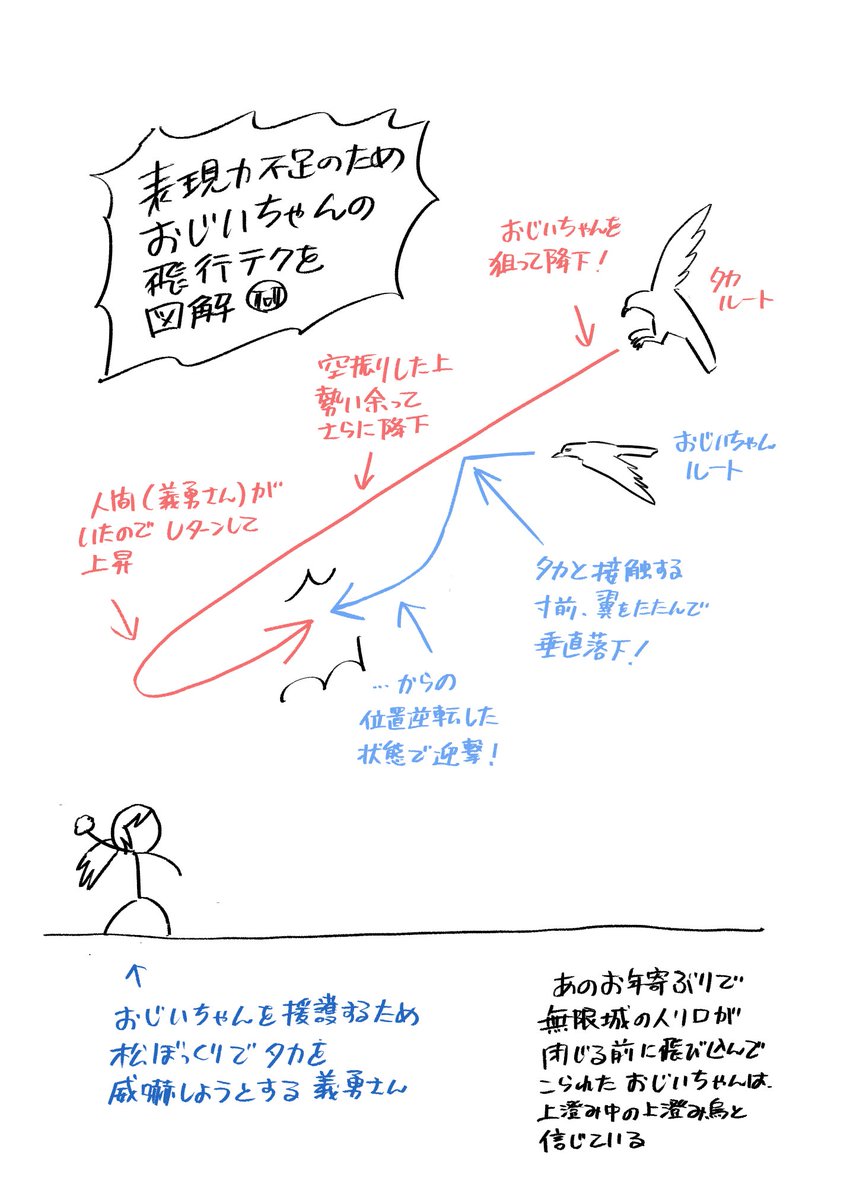 表現力不足のため
おじいちゃんの
飛行テクを
図解
おじいちゃんを
狙って降下!
タカ
ルート
空振りした上
勢い余って
さらに降下
おじいちゃん
ルート
人間(義勇さん)が
いたのでUターンして
上昇
タカと接触する
寸前、翼をたたんで
垂直落下!
…からの
位置逆転した
状態で迎撃!
おじいちゃんを援護するため
松ぼっくりでタカを
威嚇しようとする義勇さん
あのお年寄ぶりで
無限城の入り口が
閉じる前に飛び込んで
こられたおじいちゃんは、
上澄み中の上澄み烏と
信じている